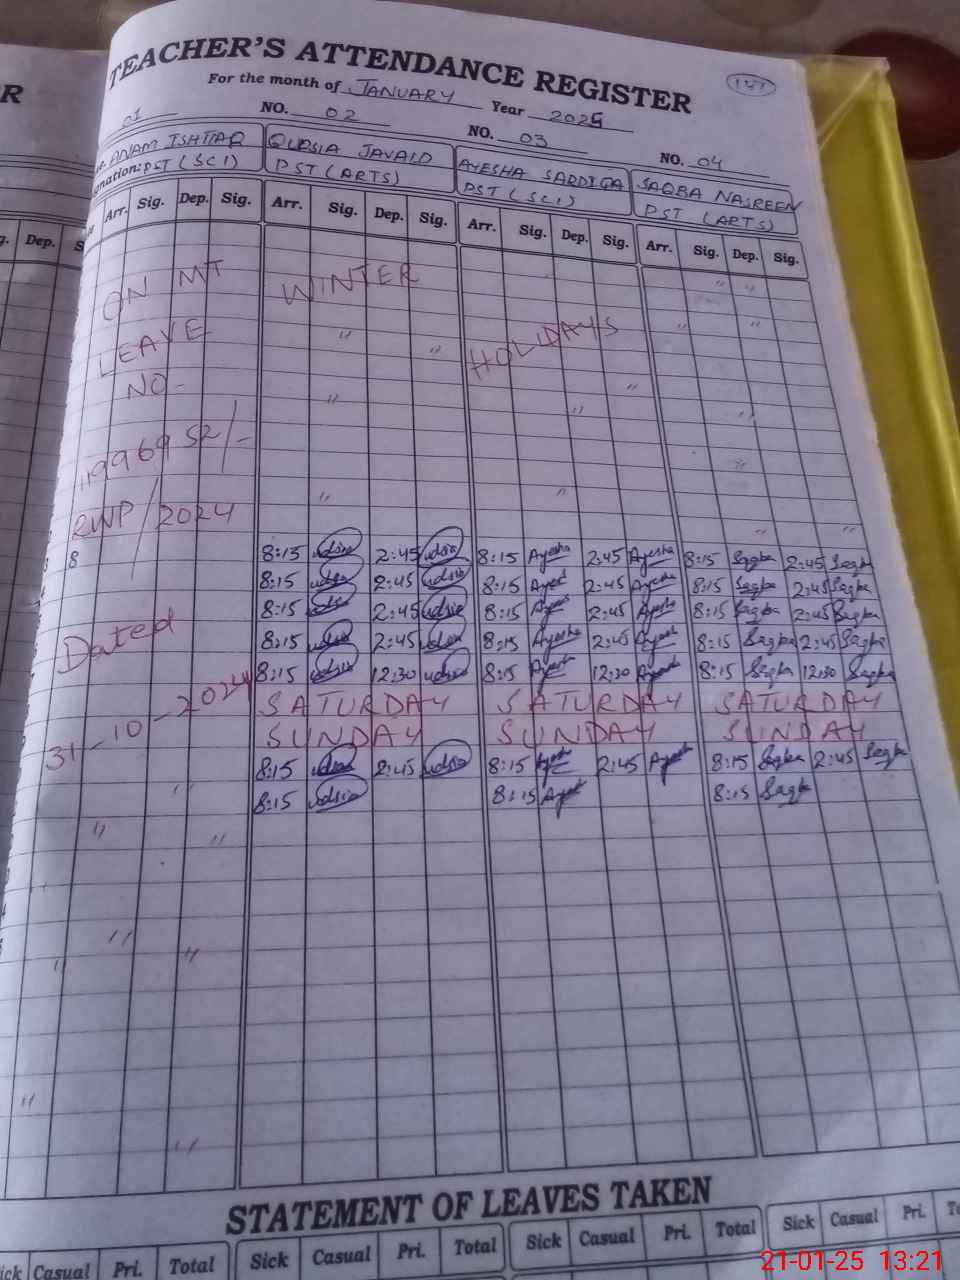 R
TEACHER'S ATTENDANCE REGISTER
137
For the month of JANUARY Year 2025
01 NO. 02 NO. 03 NO. 04
ANAM ISHTIAQ QUDSIA JAVAID AYESHA SADDIQA SAQBA NASREEN
nation: PST (SCI) PST (ARTS) PST (SCI) PST (ARTS)
g. Dep. S Arr. Sig. Dep. Sig. Arr. Sig. Dep. Sig. Arr. Sig. Dep. Sig. Arr. Sig. Dep. Sig.
ON MT WINTER
LEAVE HOLIDAYS
NO-
119969 52/-
RWP/2024
8 8:15 udsia 2:45 udsia 8:15 Ayesha 2:45 Ayesha 8:15 Saqba 2:45 Saqba
8:15 udsia 2:45 udsia 8:15 Ayesha 2:45 Ayesha 8:15 Saqba 2:45 Saqba
8:15 udsia 2:45 udsia 8:15 Ayesha 2:45 Ayesha 8:15 Saqba 2:45 Saqba
Dated 8:15 udsia 2:45 udsia 8:15 Ayesha 2:45 Ayesha 8:15 Saqba 2:45 Saqba
8:15 udsia 12:30 udsia 8:15 Ayesha 12:30 Ayesha 8:15 Saqba 12:30 Saqba
31-10-2024 SATURDAY SATURDAY SATURDAY
SUNDAY SUNDAY SUNDAY
8:15 udsia 2:45 udsia 8:15 Ayesha 2:45 Ayesha 8:15 Saqba 2:45 Saqba
8:15 udsia 8:15 Ayesha 8:15 Saqba
STATEMENT OF LEAVES TAKEN
Sick Casual Pri. Total Sick Casual Pri. Total Sick Casual Pri. Total Sick Casual Pri. To
21-01-25 13:21